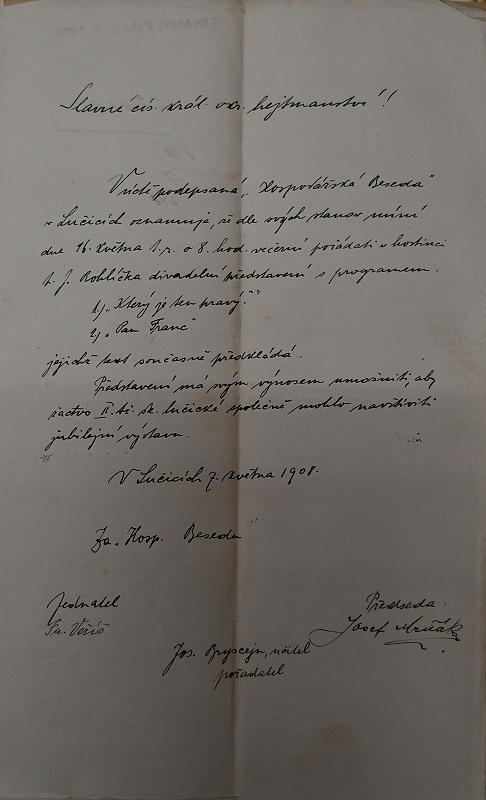 Slavné cís. král. okr. hejtmanství!!
Uctě podepsaná „Hospodářská Beseda"
v Lučicích oznamuje, že dle svých stanov míní
dne 16. května t. r. o 8. hod. večerní pořádati v hostinci
p. J. Rohlíčka divadelní představení s programem:
1) „Který je ten pravý?"
2) „Pan Franc"
jejichž text současně předkládá.
Představení má svým výnosem umožniti, aby
žactvo II. tř. šk. lučické společně mohlo navštíviti
jubilejní výstavu.
V Lučicích 7. května 1908.
Za „Hosp. Besedu"
Jednatel
Předseda:
Fr.
Josef
Jos. učitel
pořadatel